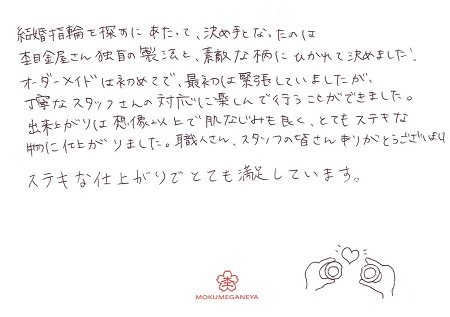 結婚指輪を探すにあたって、決め手となったのは
杢目金屋さん独自の製法と、素敵な柄にひかれて決めました!
オーダーメイドは初めてで、最初は緊張していましたが、
丁寧なスタッフさんの対応に楽しんで行うことができました。
出来上がりは想像以上で肌なじみも良く、とてもステキな
物に仕上がりました。職人さん、スタッフの皆さんありがとうございました
ステキな仕上がりでとても満足しています。
MOKUMEGANEYA